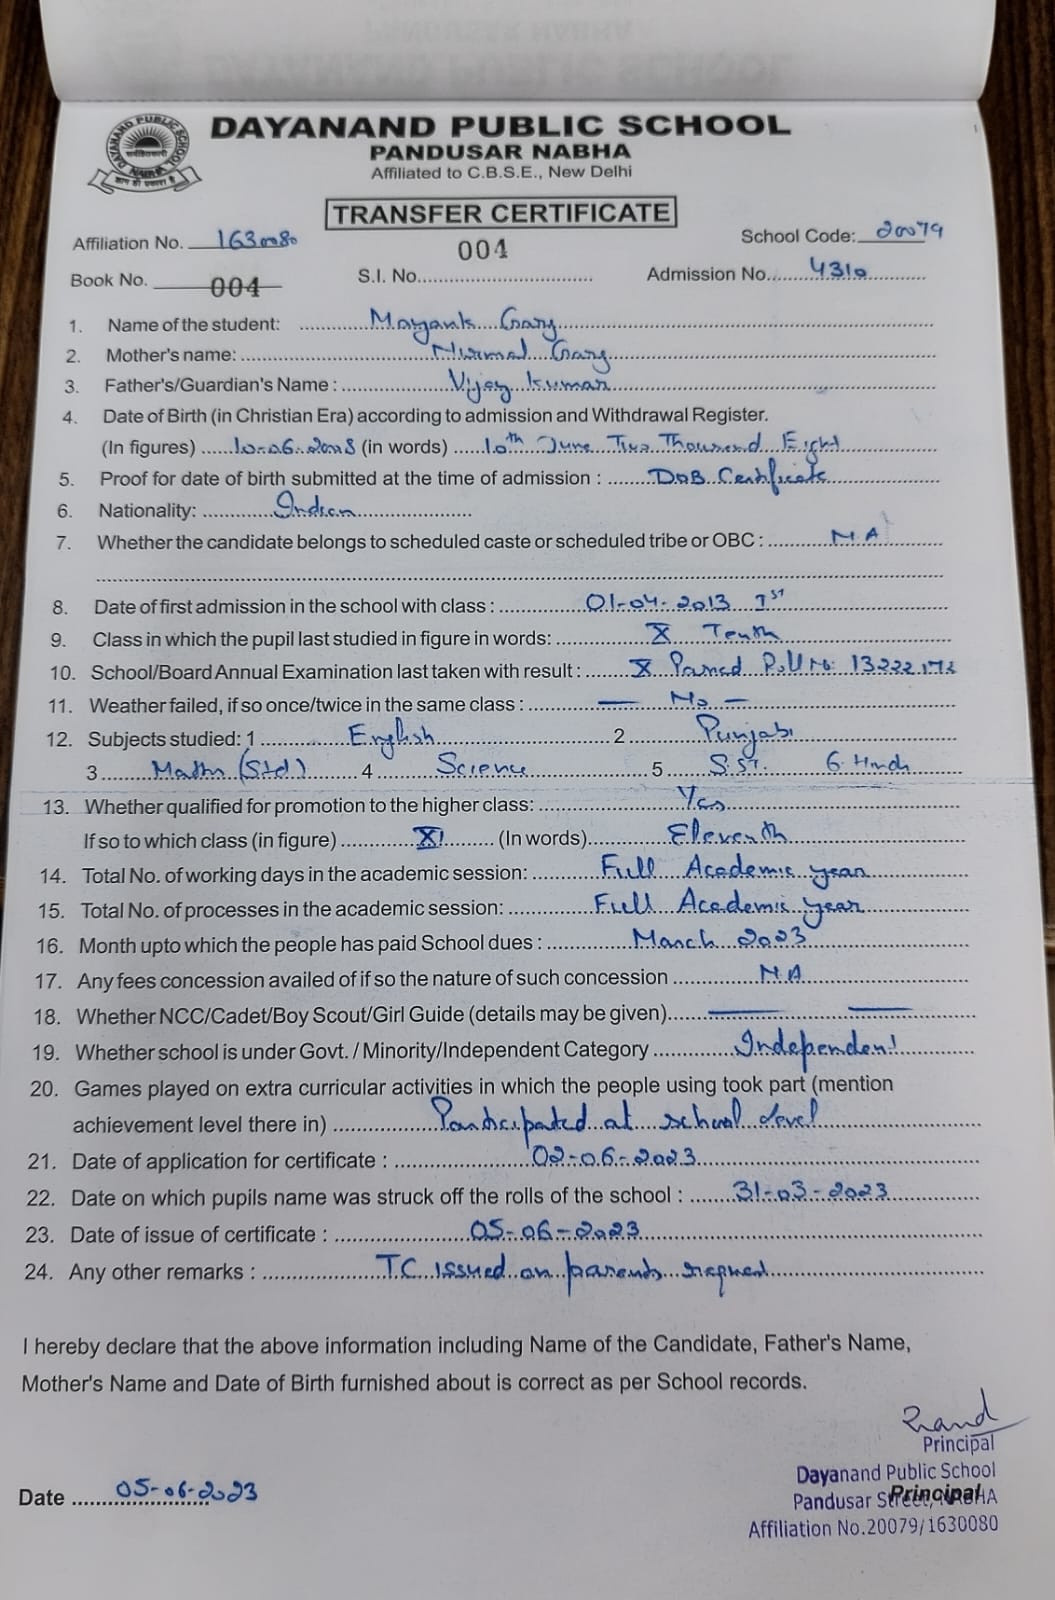 DAYANAND PUBLIC SCHOOL
PANDUSAR NABHA
Affiliated to C.B.S.E., New Delhi
TRANSFER CERTIFICATE
Affiliation No. 1630080
004
School Code: 20079
Book No. 004
S.I. No.
Admission No. 4310
1. Name of the student: Mayank Garg
2. Mother's name: Nirmal Garg
3. Father's/Guardian's Name : Vijay Kumar
4. Date of Birth (in Christian Era) according to admission and Withdrawal Register.
(In figures) 10-06-2008 (in words) 10th June Two Thousend Eight
5. Proof for date of birth submitted at the time of admission : DOB Certificate
6. Nationality: Indian
7. Whether the candidate belongs to scheduled caste or scheduled tribe or OBC : N.A
8. Date of first admission in the school with class : 01-04-2013 Ist
9. Class in which the pupil last studied in figure in words: X Tenth
10. School/Board Annual Examination last taken with result : X Passed Roll No: 13222172
11. Weather failed, if so once/twice in the same class : — No —
12. Subjects studied: 1 English 2 Punjabi
3 Maths (Std) 4 Science 5 S.ST. 6 Hindi
13. Whether qualified for promotion to the higher class: Yes
If so to which class (in figure) XI (In words) Eleventh
14. Total No. of working days in the academic session: Full Academic year
15. Total No. of processes in the academic session: Full Academic year
16. Month upto which the people has paid School dues : March 2023
17. Any fees concession availed of if so the nature of such concession N.A
18. Whether NCC/Cadet/Boy Scout/Girl Guide (details may be given) — —
19. Whether school is under Govt. / Minority/Independent Category Independent
20. Games played on extra curricular activities in which the people using took part (mention
achievement level there in) Participated at school level
21. Date of application for certificate : 02-06-2023
22. Date on which pupils name was struck off the rolls of the school : 31-03-2023
23. Date of issue of certificate : 05-06-2023
24. Any other remarks : T.C issued on parents
I hereby declare that the above information including Name of the Candidate, Father's Name,
Mother's Name and Date of Birth furnished about is correct as per School records.
Principal
Dayanand Public School
Date 05-06-2023
Pandusar Street, NABHA
Principal
Affiliation No.20079/1630080